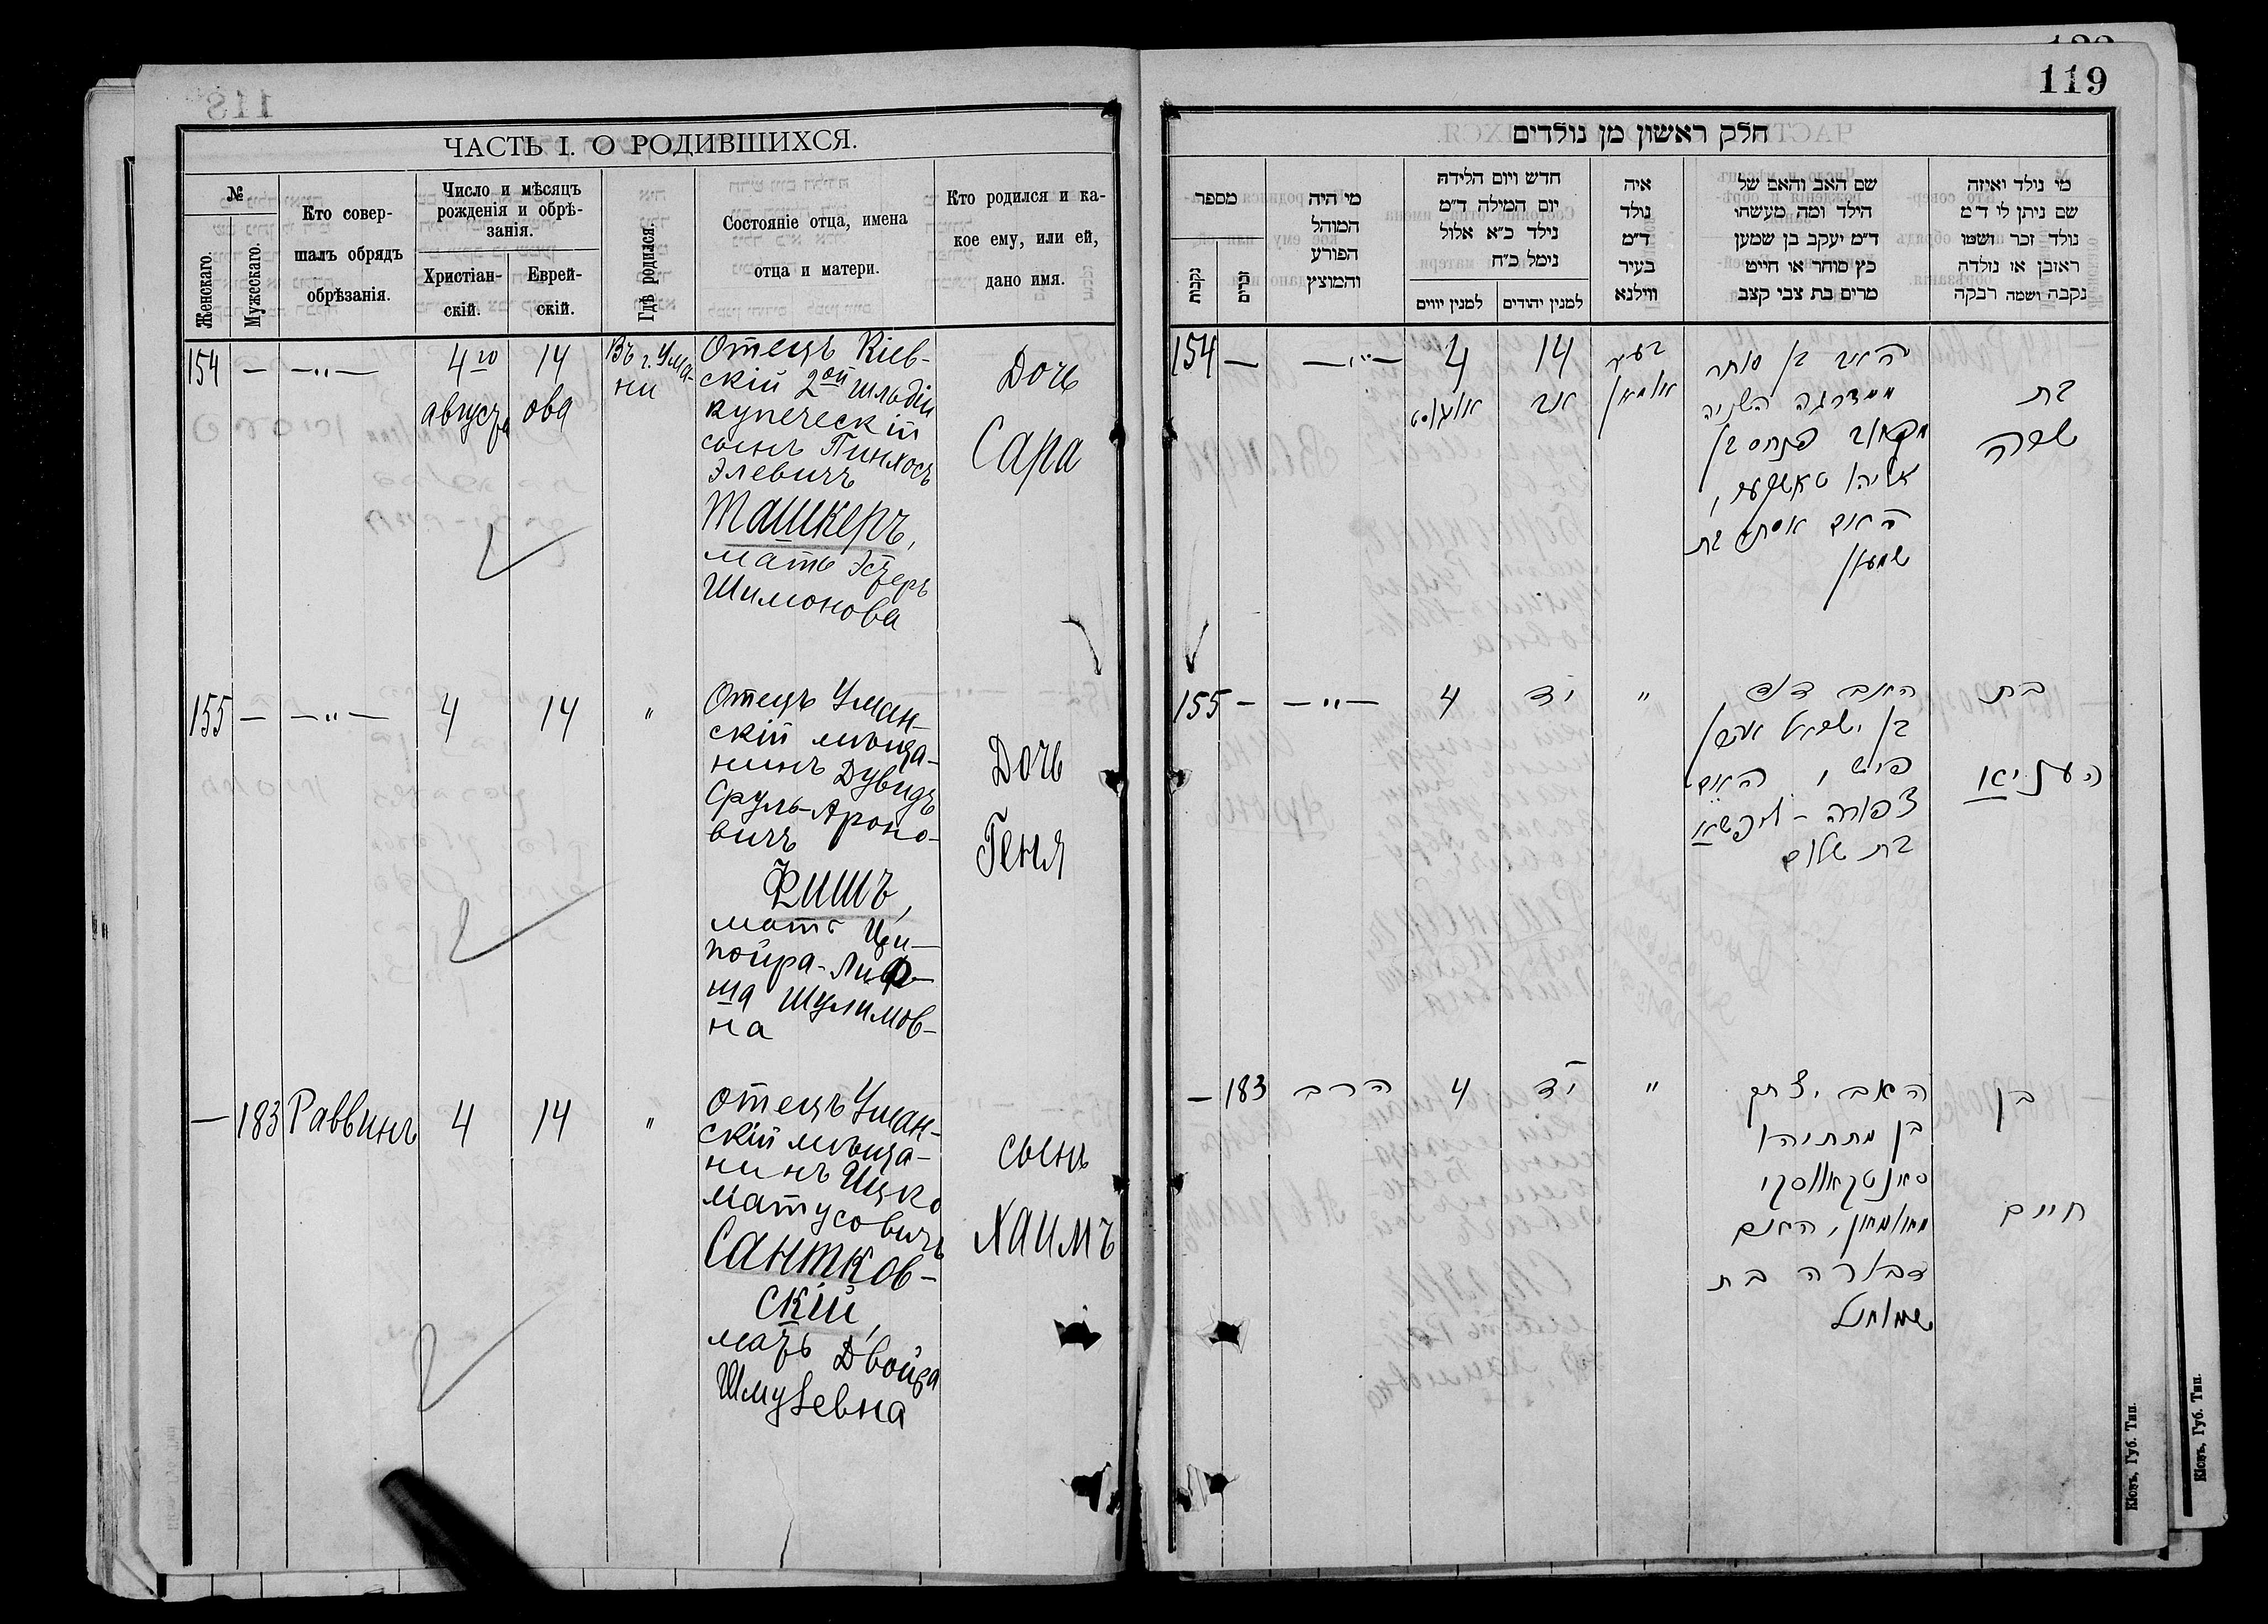 ЧАСТЬ I. О РОДИВШИХСЯ.
№
Женскаго.
Мужескаго.
Кто совер-
шалъ обрядъ
обрѣзанія.
Число и мѣсяцъ
рожденія и обрѣ-
занія.
Христіан-
скій.
Еврей-
скій.
Гдѣ родился.
Состояніе отца, имена
отца и матери.
Кто родился и ка-
кое ему, или ей,
дано имя.
154 — —„— 4го августа 14 ова Въ г. Ума-
ни
Отецъ Кіев-
скій 2ой гильдіи
купеческій
сынъ Пинхосъ
Элевичъ
Ташкеръ,
мать Эстеръ
Шимонова
Дочь
Сара
155 — —„— 4 14 „
Отецъ Уман-
скій мѣща-
нинъ Дувидъ
Сруль-Ароно-
вичъ
Фишъ,
мать Ци-
пойра-Лиф-
ша Шулимов-
на
Дочь
Геня
— 183 Раввинъ 4 14 „
Отецъ Уман-
скій мѣща-
нинъ Ицко
Матусовичъ
Сантков-
скій,
мать Двойра
Шмулевна
сынъ
Хаимъ
119
חלק ראשון מן נולדים
מספר
נקבות
זכרים
מי היה
המוהל
הפורע
והמוצץ
חדש ויום הלידה
יום המילה ד״מ
נילד כ״א אלול
נימל כ״ח
למנין יווים
למנין יהודים
איה
נולד
ד״מ
בעיר
ווילנא
שם האב והאם של
הילד ומה מעשהו
ד״מ יעקב בן שמען
כץ סוחר או חייט
מרים בת צבי קצב
מי נולד ואיזה
שם ניתן לי ד״מ
נולד זכר ושמו
ראובן או נולדה
נקבה ושמה רבקה
154 — —„— 4 אוגוסט 14 אב בעיר
אומאן
האב בן סוחר
ממדרגה השניה
פנחס בן
אליהו טאשקער,
האם אסתר בת
שמעון
בת
שרה
155 — —„— 4 י״ד „
האב דוד
בן ישראל אהרן
פיש, האם
צפורה - ליפשא
בת שלום
בת
העניא
— 183 הרב 4 י״ד „
האב יצחק
בן מתתיהו
סאנטקאווסקי
מאומאן, האם
דבורה בת
שמואל
בן
חיים
Кіевъ, Губ. Тип.
Кіевъ, Губ. Тип.